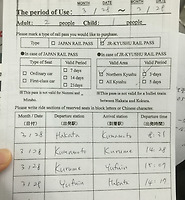 MONTH DATE MONTH DATE
The period of Use: 3 / 28 ~ 3 / 28
Adult: 2 people Child: 1 people
Please mark a type of rail pass you would like to purchase.
Type □ JAPAN RAIL PASS JR-KYUSHU RAIL PASS
□ In case of JAPAN RAIL PASS In case of JR-KYUSHU RAIL PASS
Type of Seat Valid Period Valid Area Valid Period
□ Ordinary car □ 7 days □ Northern Kyushu □ 3 days
□ First-class car □ 14 days □ All Kyushu □ 5 days
□ 21 days
This pass is not valid for Nozomi
Mizuho. between Hakata and Kokura.
Please write ride sections of reserved seats in block letters or Chinese character.
Month / Date Departure station Arrival station Departure time
(月/日) (出発駅) (到着駅) (出発時間)
3 / 28 Hakata Kumamoto 8:31
3 / 28 Kumamoto
3 / 28 Yufuin
3 / 28 Yufuin Hakata